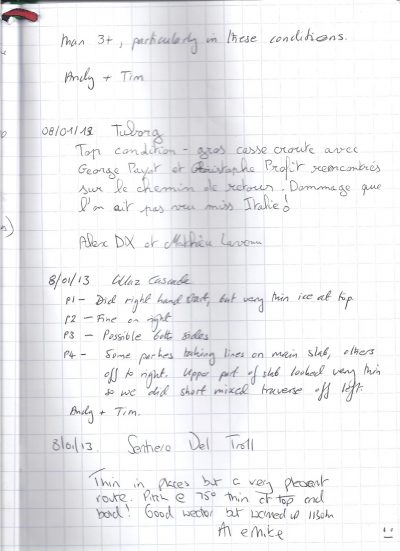 than 3+, particularly in these conditions.
Andy + Tim
08/01/13 Tuborg
Top condition - gros casse croute avec
George Payot et Christophe Profit rencontrés
sur le chemin de retour. Dommage que
l'on ait pas vu miss Italie!
Alex DX et Mathieu
8/01/13 Cascade
P1 - Did right hand start, but very thin ice at top
P2 - Fine on right
P3 - Possible both sides
P4 - Some parties taking lines on main slab, others
off to right. Upper part of slab looked very thin
so we did short mixed traverse off left.
Andy + Tim.
8/01/13. Sentiero Del Troll
Thin in places but a very pleasant
route. Pitch @ 75° thin at top and
bold! Good weather but warmed up
Al e Mike